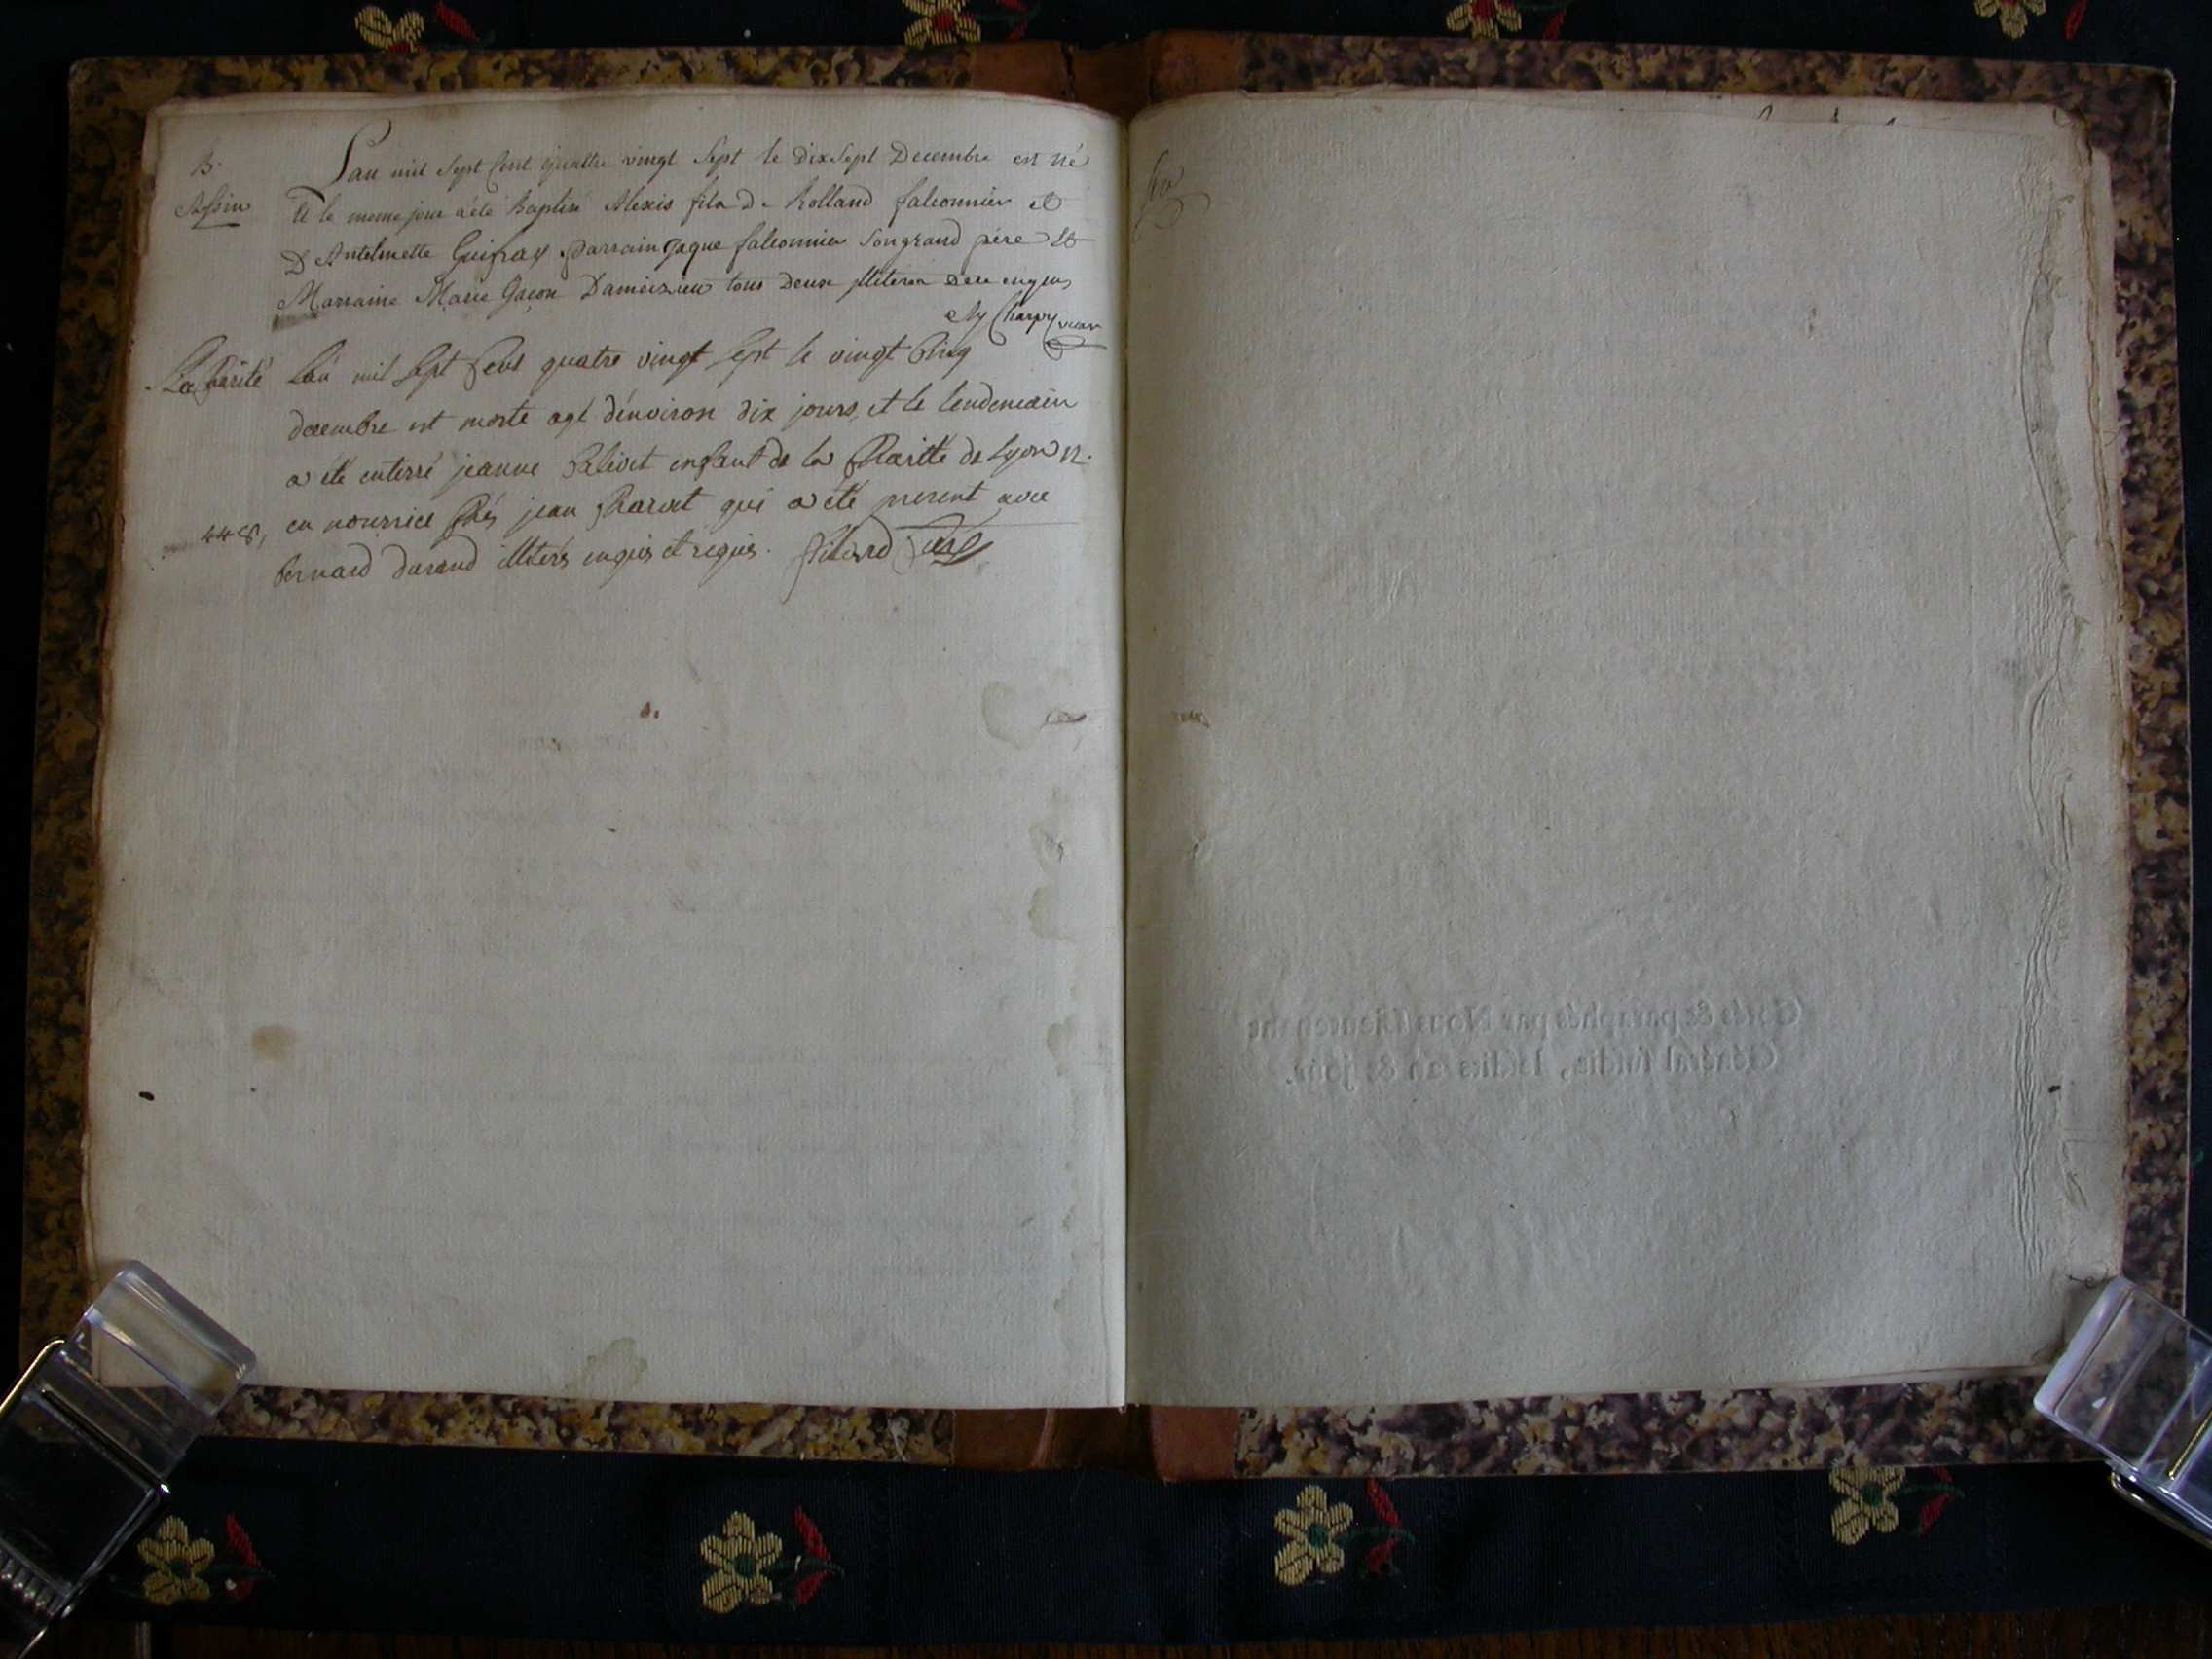 B.
L'an mil Sept Cent quattre vingt Sept le dix Sept Decembre est né
Et le meme jour a été Baptisé Alexis fils De Rolland falconnier et
D Antelmette Guifray parrain Jaque falconnier Son grand pére Et
Marraine Marie Gacon D'ameizieu tous deux illiteres de ce enquis
Charpy vicar
La Charité L'an mil Sept Cent quatre vingt Sept le vingt Cinq
decembre est morte agé d'environ dix jours et le lendemain
a été enterré jeanne enfant de la Charitté de Lyon n.
448, en nourrice Chés jean Charvet qui a été present avec
bernard durand illiterés enquis et requis. Curé
Cotés & paraphés par Nous Lieutenant
Général susdit, lesdits an & jour.